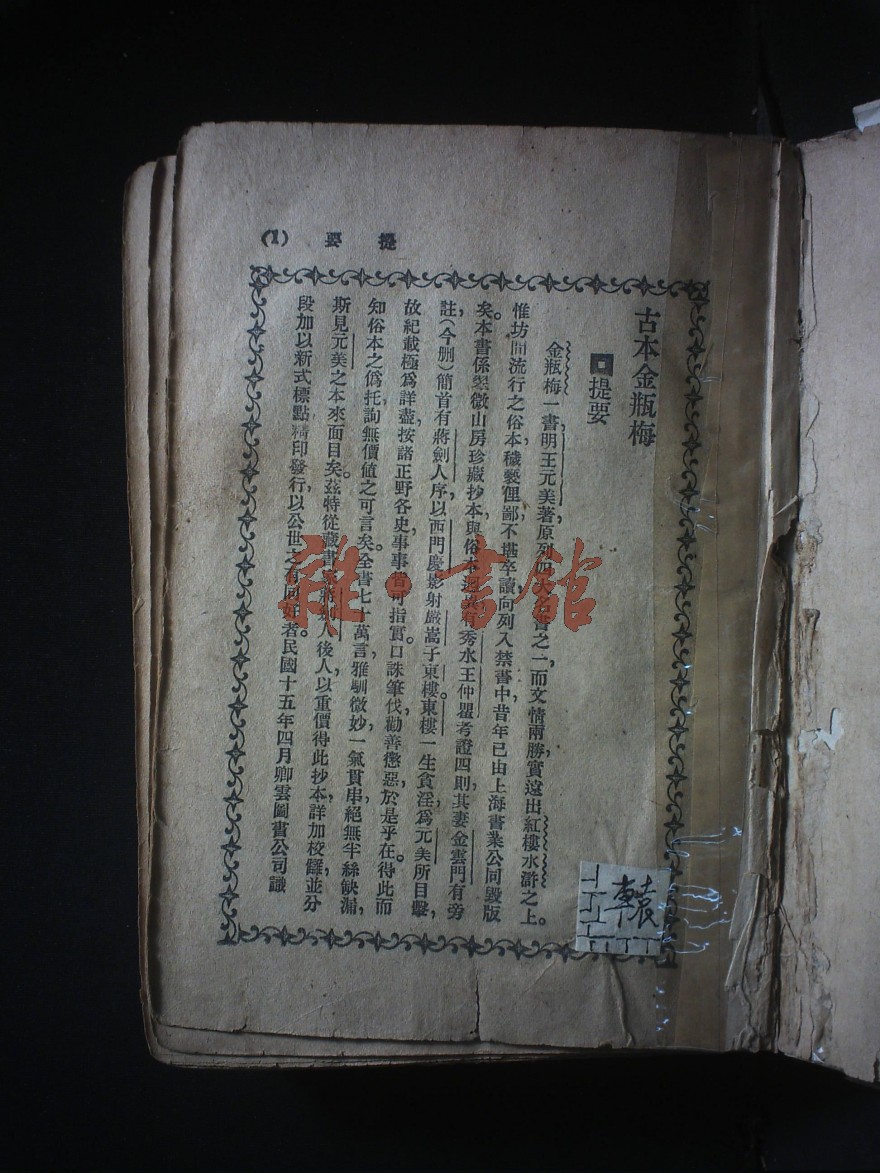 提　要　(1)
古本金瓶梅
提要
金瓶梅一書，明王元美著，原列四大奇書之一，而文情兩勝，實遠出紅樓水滸之上。
惟坊間流行之俗本，穢褻俚鄙，不堪卒讀，向列入禁書中，昔年已由上海書業公同毀版
矣。本書係翠微山房珍藏抄本，與俗本迥異，有秀水王仲瞿考證四則，其妻金雲門有旁
註，(今刪)簡首有蔣劍人序，以西門慶影射嚴嵩子東樓。東樓一生貪淫，爲元美所目擊，
故紀載極爲詳盡，按諸正野各史，事事皆可指實。口誅筆伐，勸善懲惡，於是乎在。得此而
知俗本之僞托，詢無價値之可言矣。全書七十萬言，雅馴微妙，一氣貫串，絕無半絲缺漏，
斯見元美之本來面目矣。茲特從藏書家蔣劍人後人，以重價得此抄本，詳加校讎，並分
段加以新式標點，精印發行，以公世之有同好者。民國十五年四月卿雲圖書公司識
雜·書館